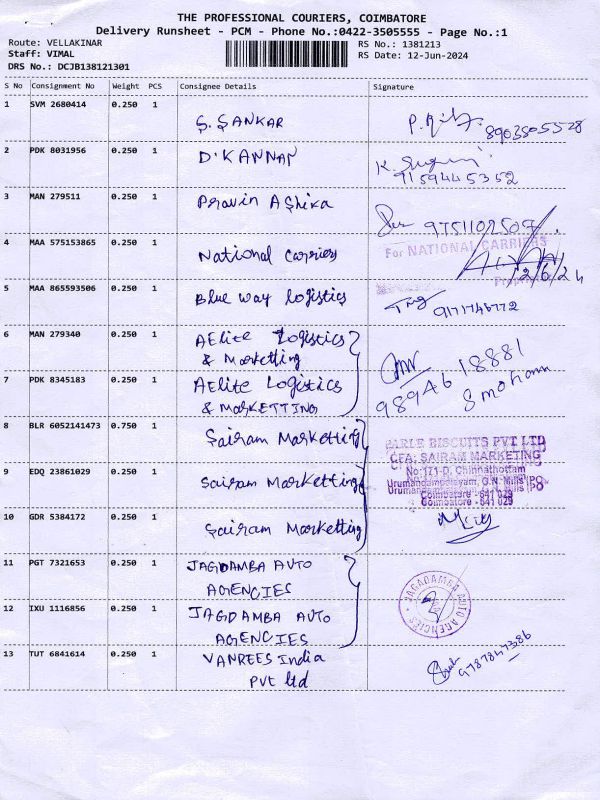 THE PROFESSIONAL COURIERS, COIMBATORE
Delivery Runsheet - PCM - Phone No.:0422-3505555 - Page No.:1
Route: VELLAKINAR
Staff: VIMAL
DRS No.: DCJB138121301
RS No.: 1381213
RS Date: 12-Jun-2024
S No Consignment No Weight PCS Consignee Details Signature
1 SVM 2680414 0.250 1 S. SANKAR 8903505528
2 PDK 8031956 0.250 1 D'KANNAN 9159445352
3 MAN 279511 0.250 1 Pravin AShika 9751102507
4 MAA 575153865 0.250 1 National Carriers
For NATIONAL CARRIERS
12/6/24
5 MAA 865593506 0.250 1 Blue way logistics 9171746772
6 MAN 279340 0.250 1 AElite Logistics
& Marketting
7 PDK 8345183 0.250 1 AElite Logistics
& MARKETTING
98946 18881
S mohann
8 BLR 6052141473 0.750 1 Sairam Marketting
9 EDQ 23861029 0.250 1 Sairam Marketting
10 GDR 5384172 0.250 1 Sairam Marketting
PARLE BISCUITS PVT LTD
CFA: SAIRAM MARKETING
No:171-D, Chinnathottam
Urumandampalayam, G.N. Mills (PO
Coimbatore - 641 029
11 PGT 7321653 0.250 1 JAGDAMBA AUTO
AGENCIES
12 IXU 1116856 0.250 1 JAGDAMBA AUTO
AGENCIES
JAGADAMBA AUTO AGENCIES
13 TUT 6841614 0.250 1 VANREES India
Pvt ltd
9787847386